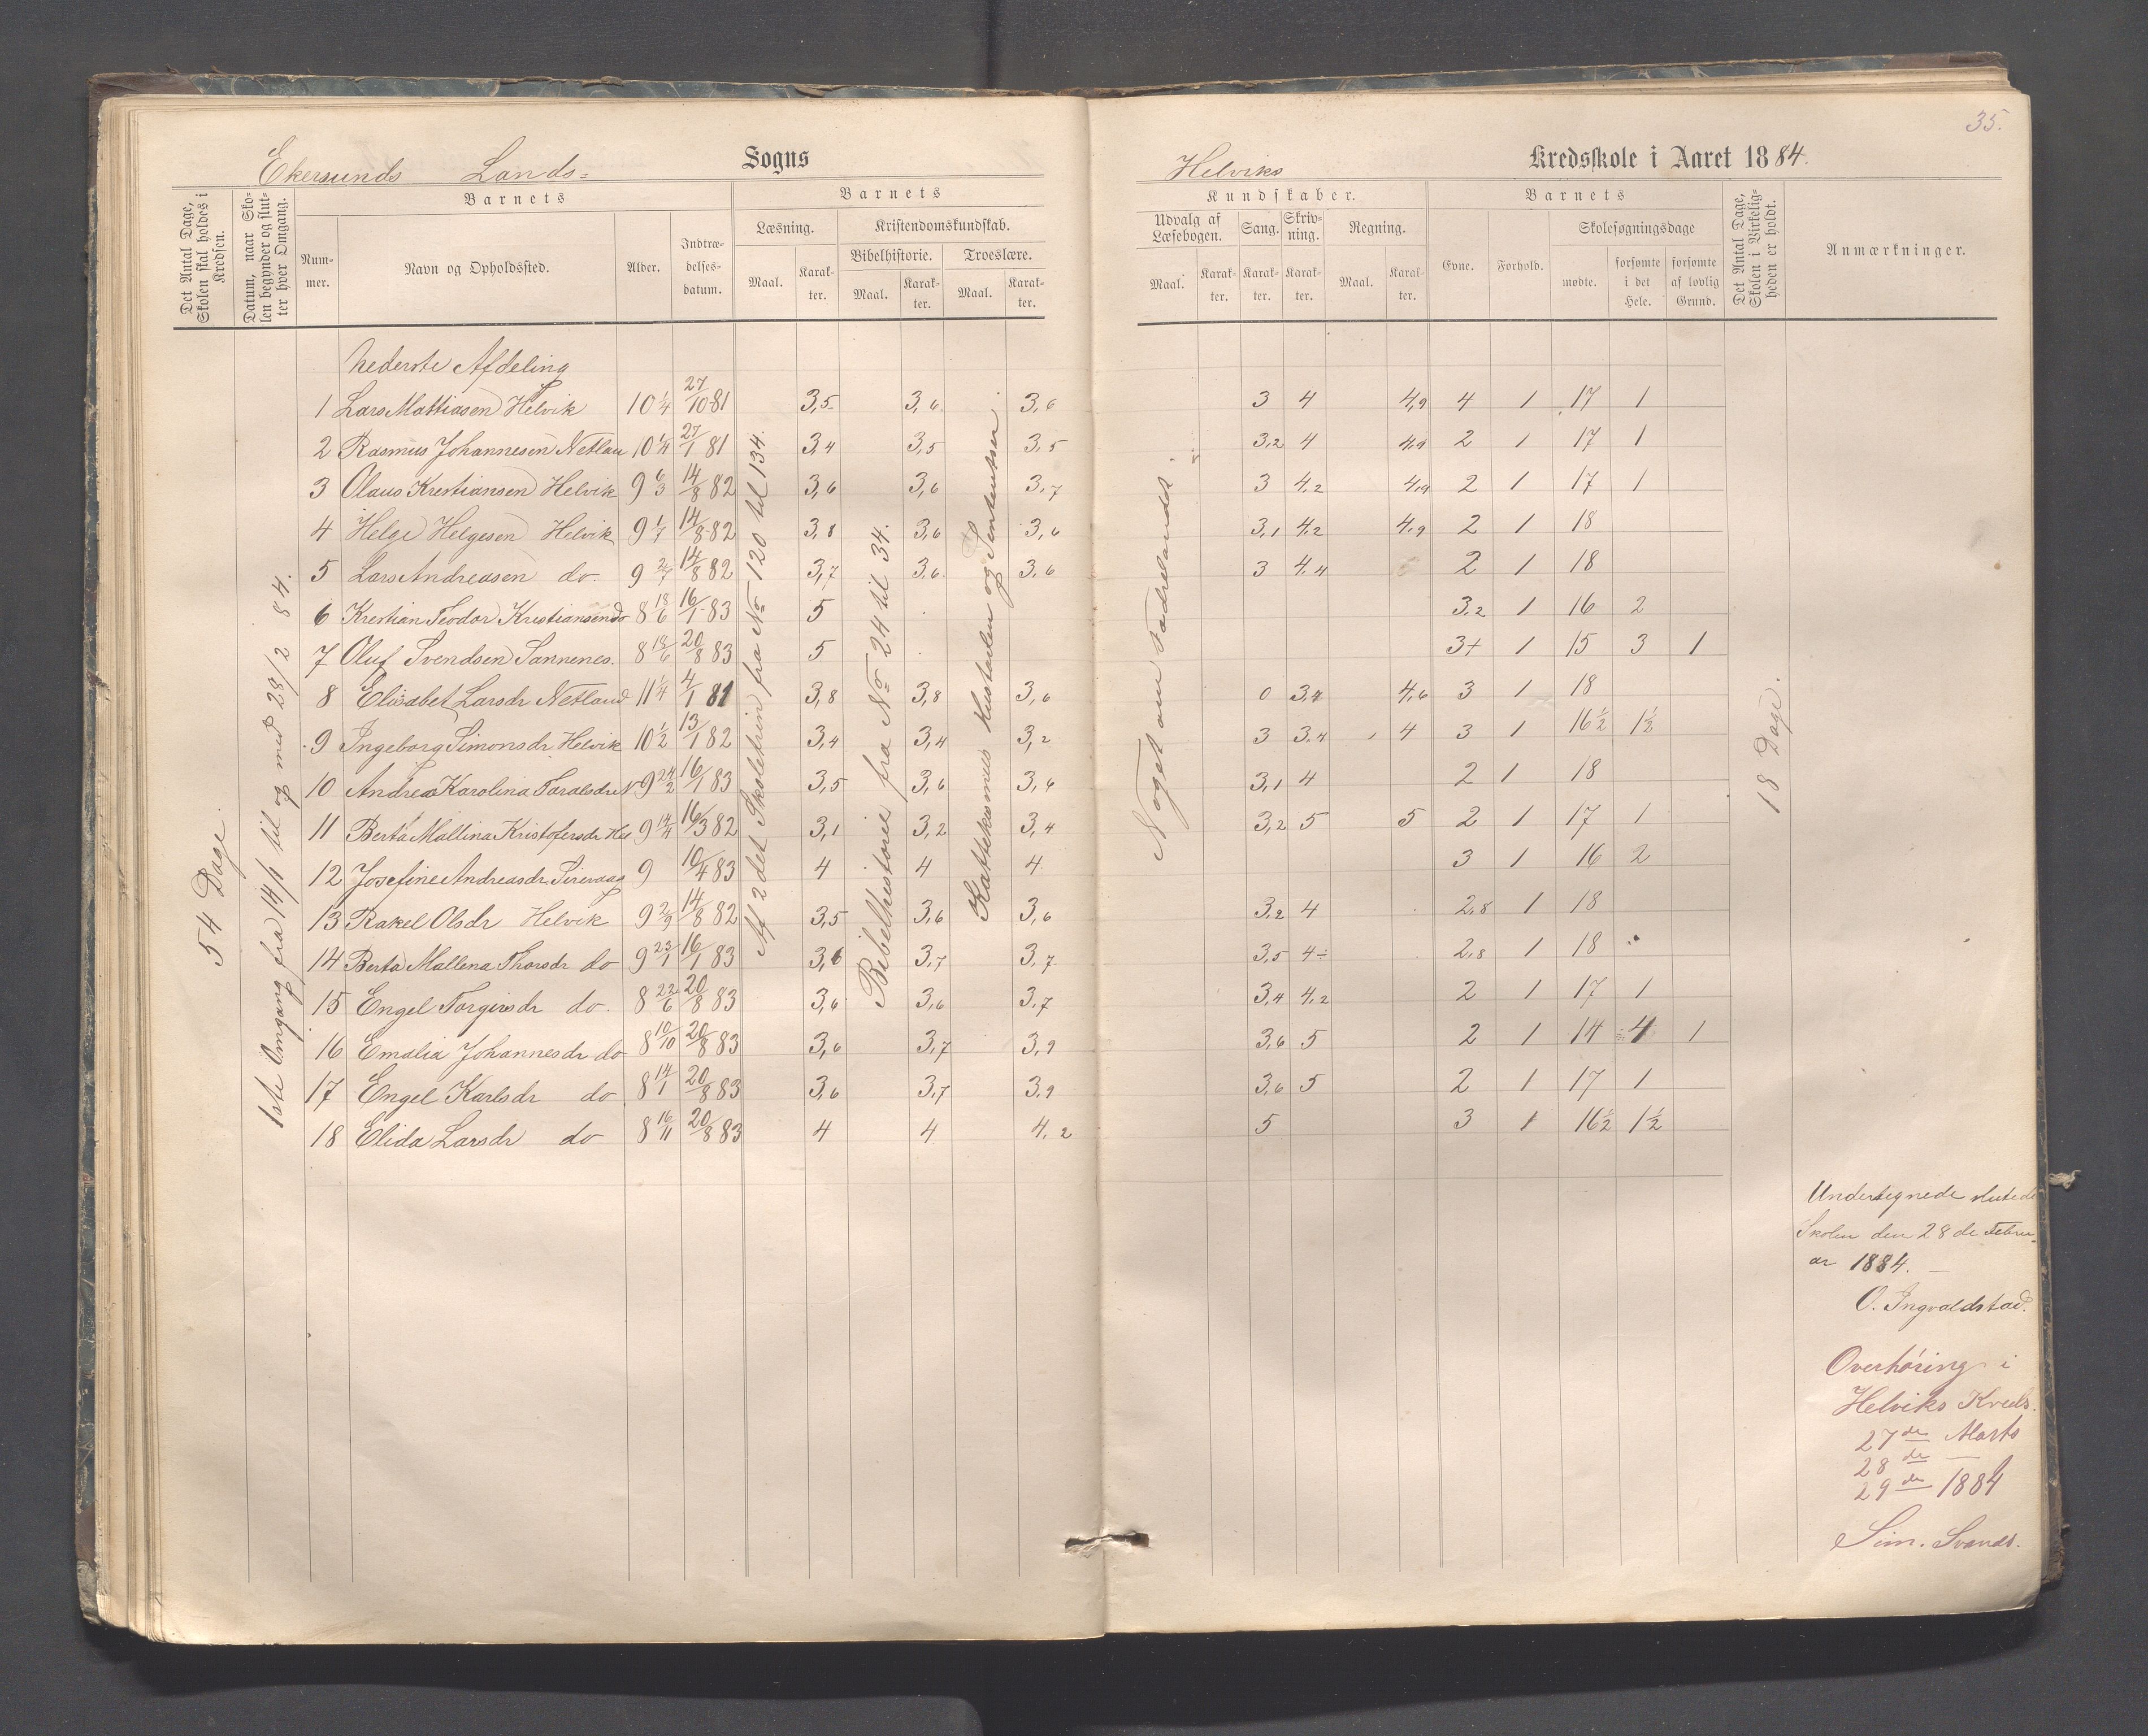 35.
Ekersunds Lands= Sogns
Helviks Kredsskole i Aaret 1884.
Det Antal Dage, Skolen skal holdes i Kredsen.
Datum, naar Skolen begynder og slutter hver Omgang.
Barnets
Nummer.
Navn og Opholdssted.
Alder.
Indtrædelsesdatum.
Barnets
Læsning.
Maal.
Karakter.
Kristendomskundskab.
Bibelhistorie.
Maal.
Karakter.
Troeslære.
Maal.
Karakter.
Kundskaber.
Udvalg af Læsebogen.
Maal.
Karakter.
Sang.
Karakter.
Skrivning.
Karakter.
Regning.
Maal.
Karakter.
Barnets
Evne.
Forhold.
Skolesøgningsdage
mødte.
forsømte i det Hele.
forsømte af lovlig Grund.
Det Antal Dage, Skolen i Virkeligheden er holdt.
Anmærkninger.
54 Dage.
1ste Omgang fra 14/1 til og med 28/2 84.
Af 2det Skoletrin fra No 120 til 134.
Bibelhistorie fra No 24 til 34.
Kattekismus Hustavlen og Sententser.
Noget om Fædrelandet.
18 Dage.
Nederste Afdeling
1 Lars Mattiasen Helvik 10 1/4 27/10 81 3,5 3,6 3,6 3 4 4,9 4 1 17 1
2 Rasmus Johannesen Netlan 10 1/4 27/1 81 3,4 3,5 3,5 3,2 4 4,9 2 1 17 1
3 Olaus Krestiansen Helvik 9 6/3 14/8 82 3,6 3,6 3,7 3 4,2 4,9 2 1 17 1
4 Helge Helgesen Helvik 9 1/7 14/8 82 3,8 3,6 3,6 3,1 4,2 4,9 2 1 18
5 Lars Andreasen do. 9 2/7 14/8 82 3,7 3,6 3,6 3 4,4 2 1 18
6 Krestian Teodor Kristiansen do 8 18/6 16/1 83 5 3,2 1 16 2
7 Oluf Svendsen Sannenes. 8 18/6 20/8 83 5 3+ 1 15 3 1
8 Elisabet Larsdr Netland 11 1/4 4/1 81 3,8 3,8 3,6 0 3,4 4,6 3 1 18
9 Ingeborg Simonsdr Helvik 10 1/2 13/1 82 3,4 3,4 3,2 3 3,4 4 3 1 16 1/2 1 1/2
10 Andrea Karolina Taralsdr N 9 24/2 16/1 83 3,5 3,6 3,6 3,1 4 2 1 18
11 Berta Mallina Kristofersdr Hel 9 14/4 16/3 82 3,1 3,2 3,4 3,2 5 5 2 1 17 1
12 Josefine Andreasdr Sirevaag 9 10/4 83 4 4 4 3 1 16 2
13 Rakel Olsdr Helvik 9 2/9 14/8 82 3,5 3,6 3,6 3,2 4 2,8 1 18
14 Berta Mallena Thorsdr do 9 23/1 16/1 83 3,6 3,7 3,7 3,5 4÷ 2,8 1 18
15 Engel Torgirsdr do. 8 22/6 20/8 83 3,6 3,6 3,7 3,4 4,2 2 1 17 1
16 Emalia Johannesdr do 8 10/10 20/8 83 3,6 3,7 3,9 3,6 5 2 1 14 4 1
17 Engel Karlsdr do 8 14/1 20/8 83 3,6 3,7 3,9 3,6 5 2 1 17 1
18 Elida Larsdr do 8 16/11 20/8 83 4 4 4,2 5 3 1 16 1/2 1 1/2
Undertegnede sluttede
Skolen den 28de Febru-
ar 1884. —
O. Ingvaldstad.
Overhøring i
Helviks Kreds.
27de Marts
28de —
29de 1884
Sim. Svands.